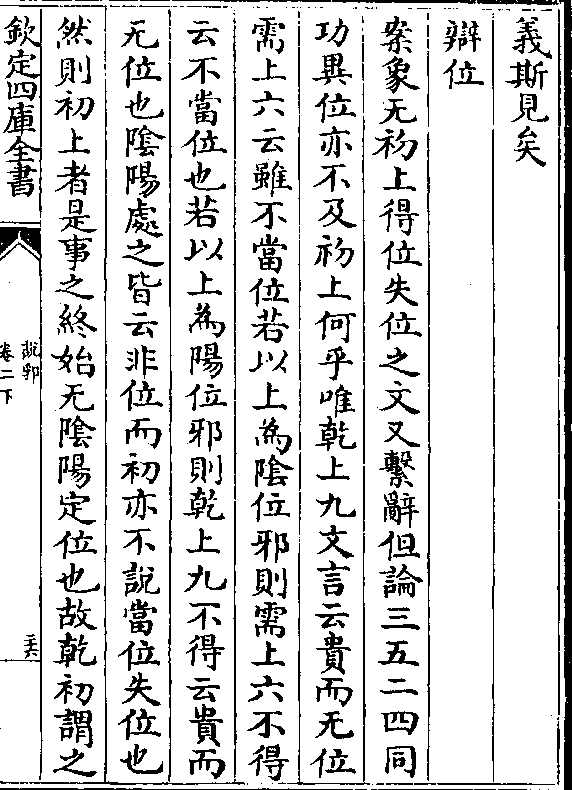 義斯見矣
辯位
案象无初上得位失位之文又繫辭但論三五二四同
功異位亦不及初上何乎唯乾上九文言云貴而无位
需上六云雖不當位若以上為陰位邪則需上六不得
云不當位也若以上為陽位邪則乾上九不得云貴而
无位也陰陽處之皆云非位而初亦不說當位失位也
然則初上者是事之終始无陰陽定位也故乾初謂之
欽定四庫全書
說郛
卷二下